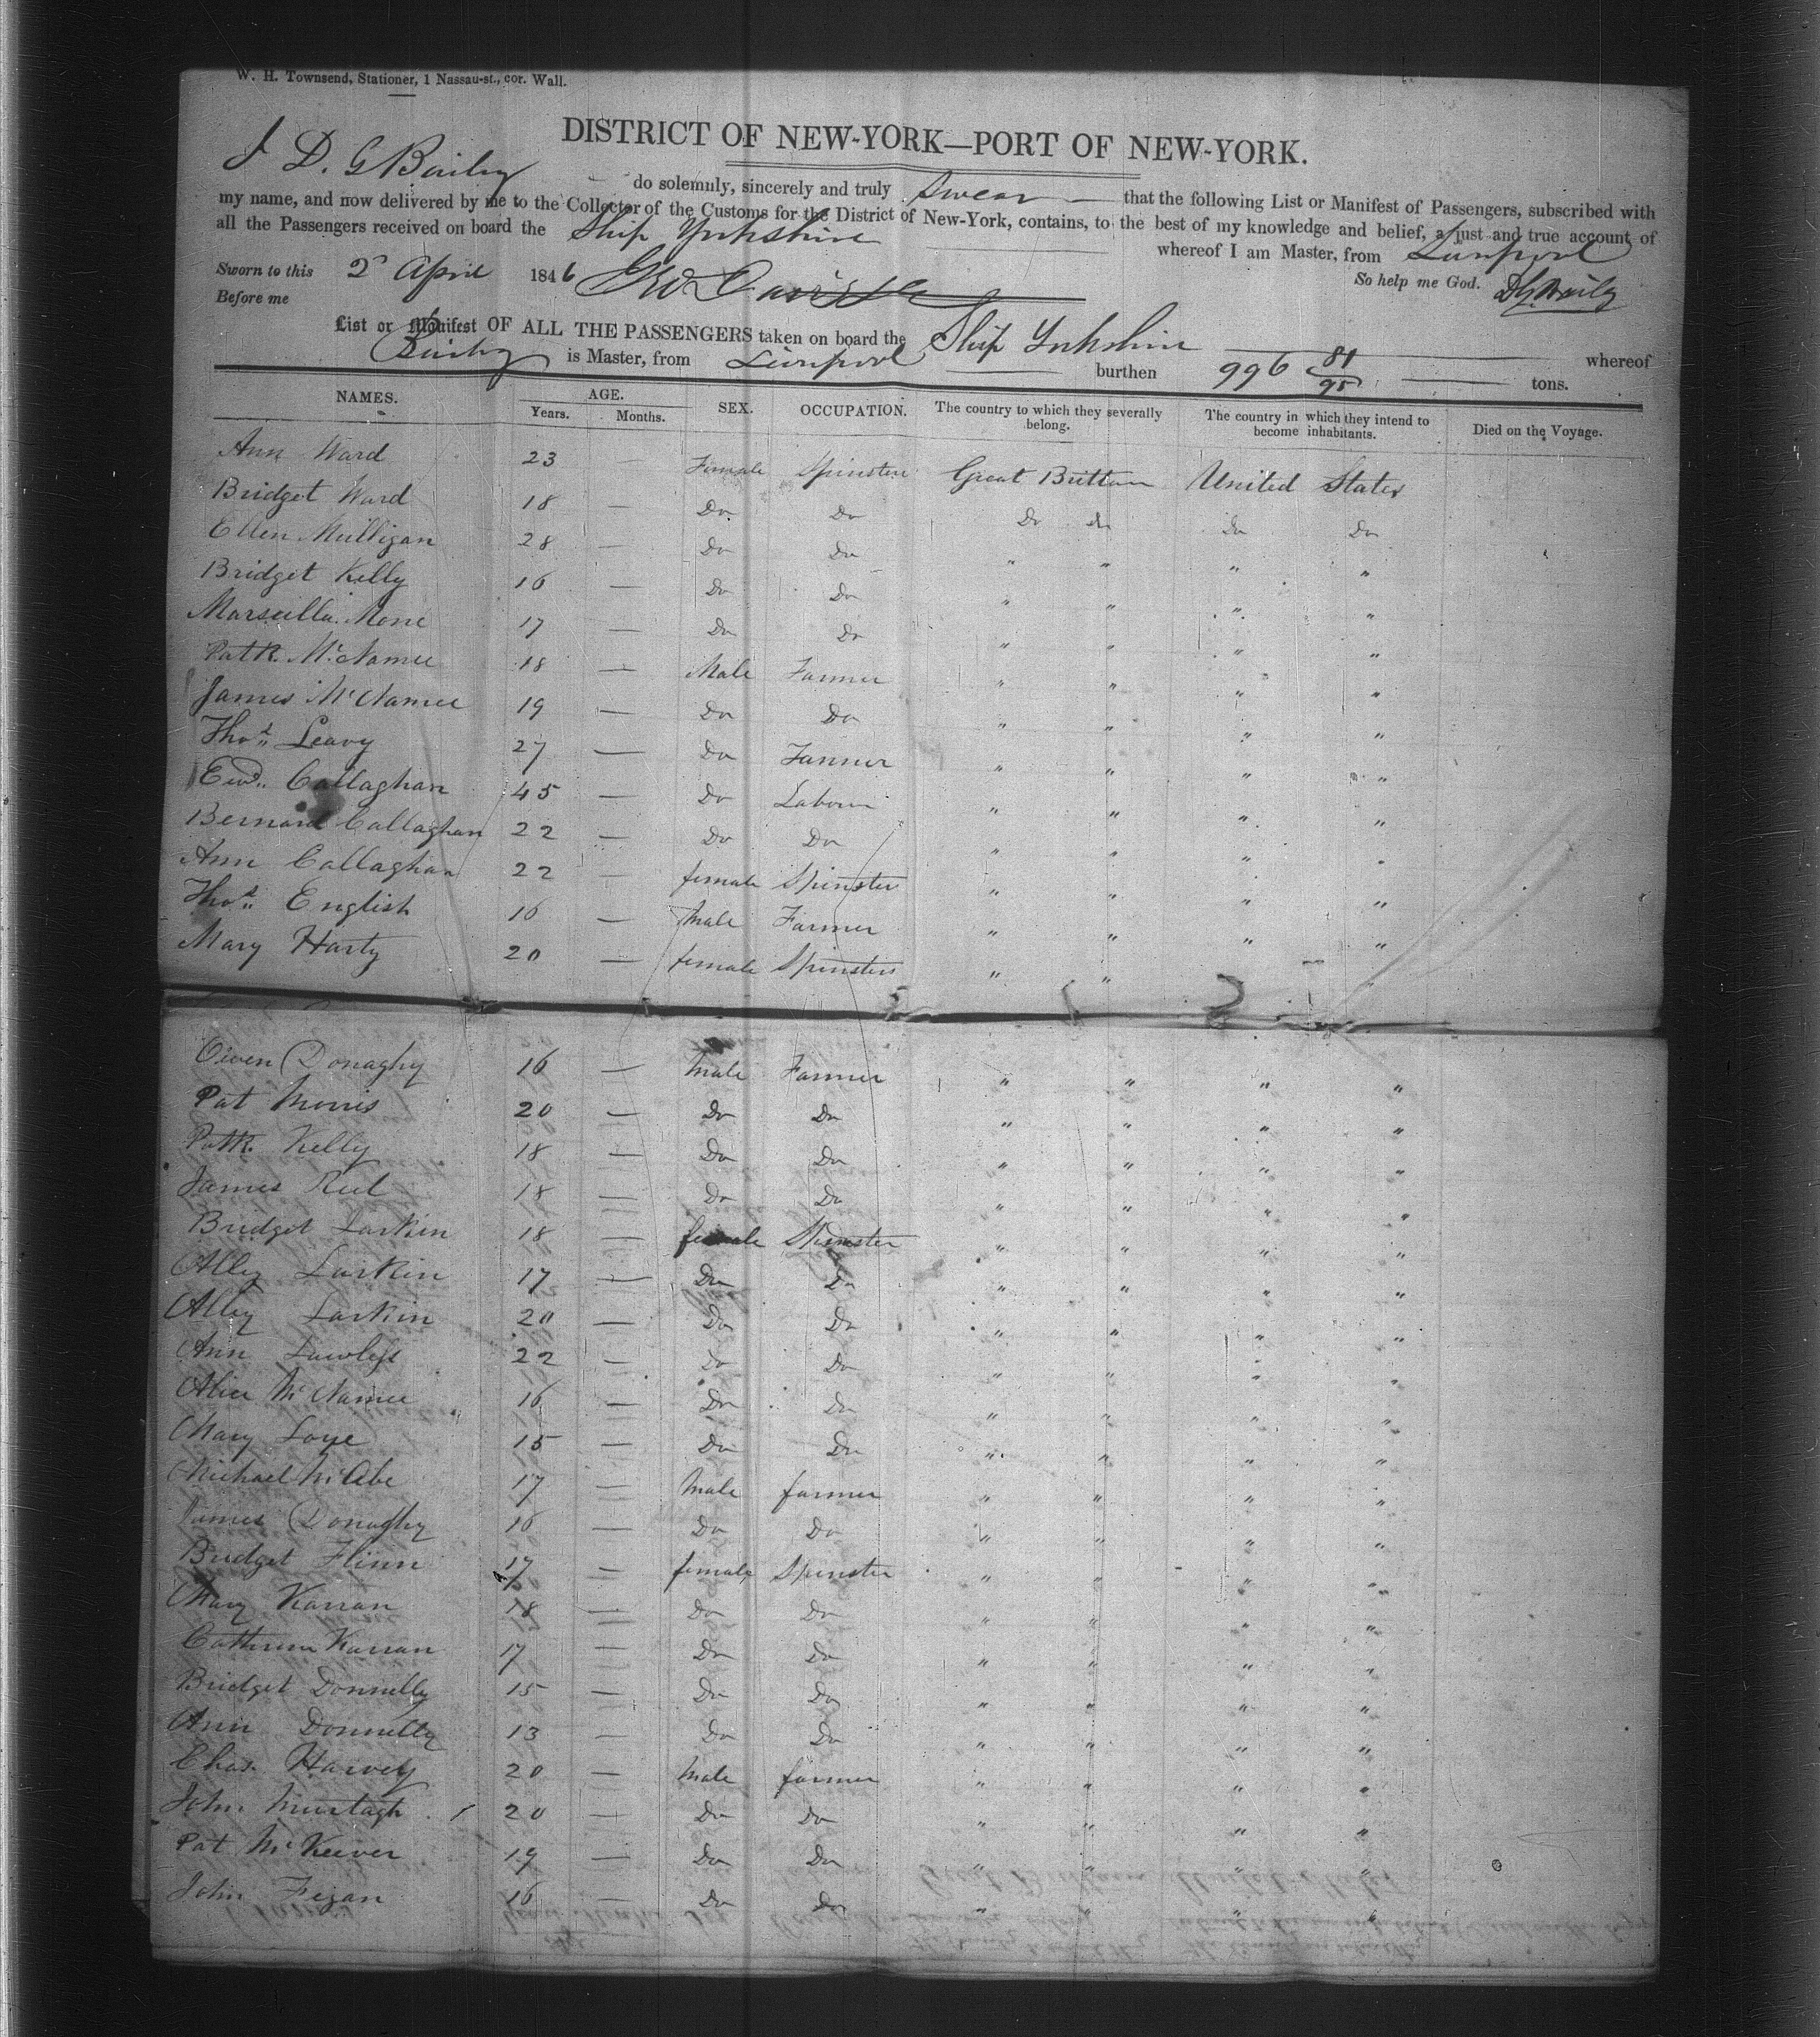 W. H. Townsend, Stationer, 1 Nassau-st., cor. Wall.
DISTRICT OF NEW-YORK—PORT OF NEW-YORK.
I D. G Bailey do solemnly, sincerely and truly swear that the following List or Manifest of Passengers, subscribed with
my name, and now delivered by me to the Collector of the Customs for the District of New-York, contains, to the best of my knowledge and belief, a just and true account of
all the Passengers received on board the Ship Yorkshire whereof I am Master, from Liverpool
Sworn to this 2d April 1846 So help me God. D G Baily
Before me
List or Manifest OF ALL THE PASSENGERS taken on board the Ship Yorkshire whereof
Baily is Master, from Liverpool burthen 996 81/95 tons.
NAMES. AGE. SEX. OCCUPATION. The country to which they severally belong. The country in which they intend to become inhabitants. Died on the Voyage.
Years. Months.
Ann Ward 23 — Female Spinster Great Brittan United States
Bridget Ward 18 — Do Do Do do Do Do
Ellen Mulligan 28 — Do Do " " " "
Bridget Kelly 16 — Do Do " " " "
Marseilla Mone 17 — Do Do " " " "
Patk. McNamee 18 — Male Farmer " " " "
James McNamee 19 — Do Do " " " "
Thos. Leavy 27 — Do Farmer " " " "
Ewd. Callaghan 45 — Do Labour " " " "
Bernard Callaghan 22 — Do Do " " " "
Ann Callaghan 22 — female Spinster " " " "
Thos. English 16 — Male Farmer " " " "
Mary Harty 20 — female Spinster " "
Owen Donaghy 16 — Male Farmer " " " "
Pat Morris 20 — Do Do " " " "
Patk. Kelly 18 — Do Do " " " "
James Reel 18 — Do Do " " " "
Bridget Larkin 18 — female Spinster " " " "
Alley Larkin 17 — Do Do " " " "
Alley Larkin 20 — Do Do " " " "
Ann 22 — Do Do " " " "
Alice McNamee 16 — Do Do " " " "
Mary Loye 15 — Do Do " " " "
Michael McAbe 17 — Male farmer " " " "
James Donaghy 16 — Do Do " " " "
Bridget Flinn 17 — female Spinster " " " "
Mary Karran 18 — Do Do " " " "
Catherine Karran 17 — Do Do " " " "
Bridget Donnelly 15 — Do Do " " " "
Ann Donnelly 13 — Do Do " " " "
Chas. Harvey 20 — Male farmer " " " "
John Murtagh 20 — Do Do " " " "
Pat McKeever 19 — Do Do " " " "
John Fegan 16 — Do Do " " " "